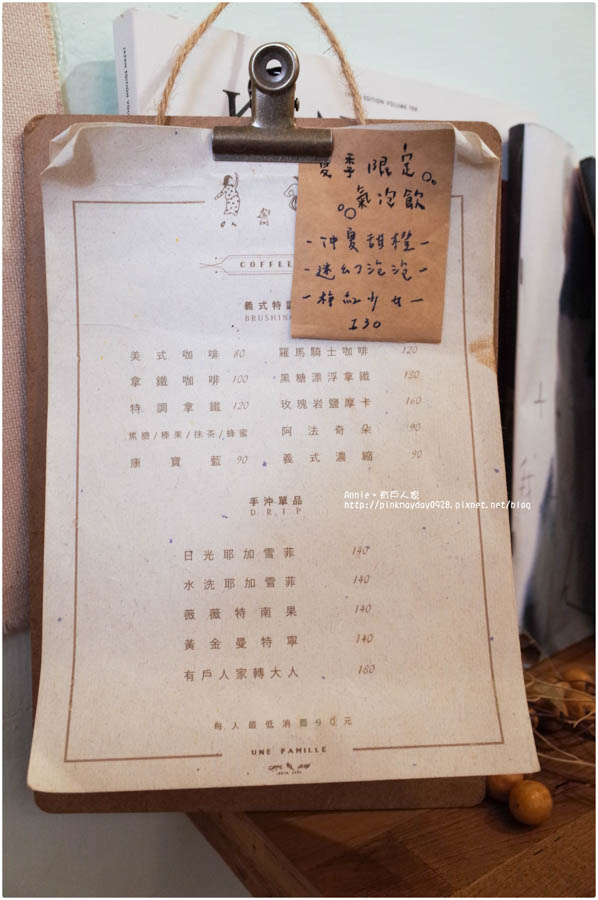 EDITION VOLUME TEN
夏季限定
氣泡飲
-仲夏甜橙-
-迷幻泡泡-
-梅紅少女-
130
COFFEE
義式特調
BRUSHING
美式咖啡 80 羅馬騎士咖啡 120
拿鐵咖啡 100 黑糖漂浮拿鐵 120
特調拿鐵 120 玫瑰岩鹽摩卡 160
焦糖/榛果/抹茶/蜂蜜 阿法奇朵 90
康寶藍 90 義式濃縮 90
手沖單品
DRIP
日光耶加雪菲 140
水洗耶加雪菲 140
薇薇特南果 140
黃金曼特寧 140
有戶人家轉大人 180
每人最低消費90元
UNE FAMILLE
Annie·有戶人家
http://pinknayday0928.pixnet.net/blog